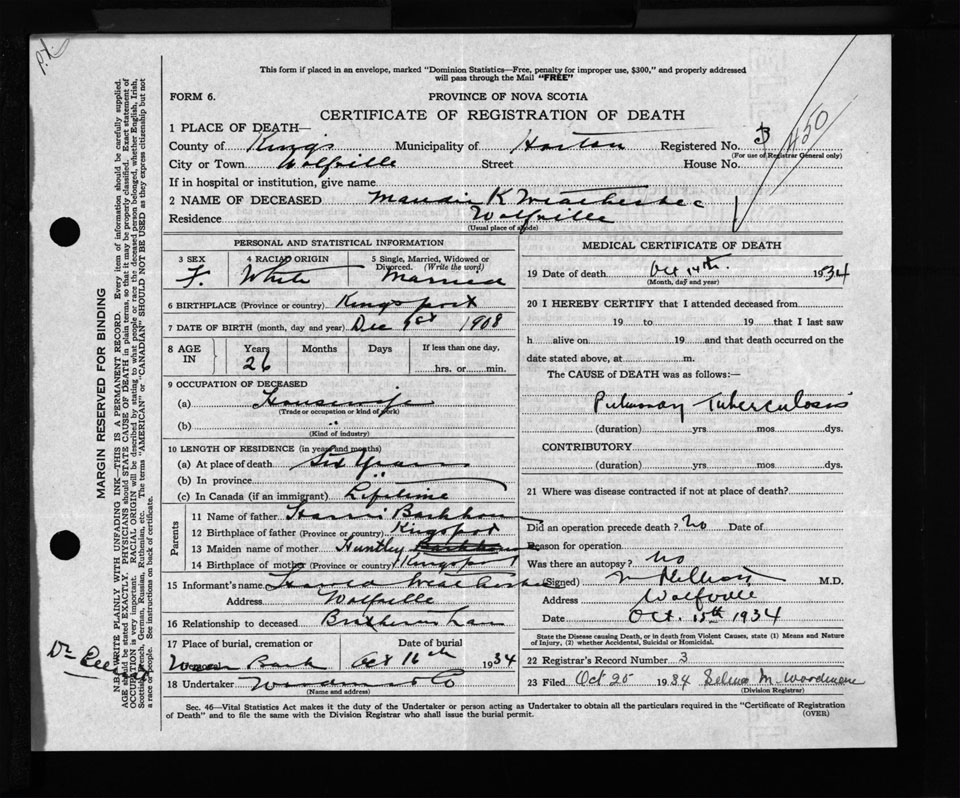 This form if placed in an envelope, marked "Dominion Statistics—Free, penalty for improper use, $300," and properly addressed
will pass through the Mail "FREE"
FORM 6.
PROVINCE OF NOVA SCOTIA
CERTIFICATE OF REGISTRATION OF DEATH
1 PLACE OF DEATH—
County of Kings Municipality of Horton Registered No. 3
(For use of Registrar General only)
450
City or Town Wolfville Street House No.
If in hospital or institution, give name
2 NAME OF DECEASED K Weatherbee
Residence Wolfville
(Usual place of abode)
PERSONAL AND STATISTICAL INFORMATION
3 SEX 4 RACIAL ORIGIN 5 Single, Married, Widowed or Divorced. (Write the word)
F. White Married
6 BIRTHPLACE (Province or country) Kingsport
7 DATE OF BIRTH (month, day and year) Dec 1908
8 AGE IN Years Months Days If less than one day,
26 hrs. or min.
9 OCCUPATION OF DECEASED
(a) Housewife
(Trade or occupation or kind of work)
(b) "
(Kind of industry)
10 LENGTH OF RESIDENCE (in years and months)
(a) At place of death Six Years
(b) In province
(c) In Canada (if an immigrant) Lifetime
Parents
11 Name of father
12 Birthplace of father (Province or country) Kingsport
13 Maiden name of mother Huntley
14 Birthplace of mother (Province or country) Kingsport
15 Informant's name
Address Wolfville
16 Relationship to deceased Brother in Law
17 Place of burial, cremation or Date of burial
Oct 16th 1934
18 Undertaker
(Name and address)
MEDICAL CERTIFICATE OF DEATH
19 Date of death Oct 14th. 1934
(Month, day and year)
20 I HEREBY CERTIFY that I attended deceased from
19 to 19 that I last saw
h alive on 19 and that death occurred on the
date stated above, at m.
The CAUSE of DEATH was as follows:—
Pulmonary Tuberculosis
(duration) yrs mos dys.
CONTRIBUTORY
(duration) yrs. mos. dys.
21 Where was disease contracted if not at place of death?
Did an operation precede death? No Date of
Reason for operation
Was there an autopsy? No
(Signed) M.D.
Address Wolfville
Date Oct. 15th 1934
State the Disease causing Death, or in death from Violent Causes, state (1) Means and Nature
of Injury, (2) whether Accidental, Suicidal or Homicidal.
22 Registrar's Record Number 3
23 Filed Oct 25 1934 M. Woodman
(Division Registrar)
Sec. 46—Vital Statistics Act makes it the duty of the Undertaker or person acting as Undertaker to obtain all the particulars required in the "Certificate of Registration
of Death" and to file the same with the Division Registrar who shall issue the burial permit.
(OVER)
MARGIN RESERVED FOR BINDING
N.B.—WRITE PLAINLY WITH UNFADING INK—THIS IS A PERMANENT RECORD. Every item of information should be carefully supplied.
AGE should be stated EXACTLY. PHYSICIANS should STATE CAUSE OF DEATH in plain terms, so that it may be properly classified. Exact statement of
OCCUPATION is very important. RACIAL ORIGIN will be described by stating to what people or race the deceased person belonged, whether English, Irish,
Scottish, French, German, Russian, Ruthenian, etc. The terms "AMERICAN" or "CANADIAN" SHOULD NOT BE USED as they express citizenship but not
a race or people. See instructions on back of certificate.